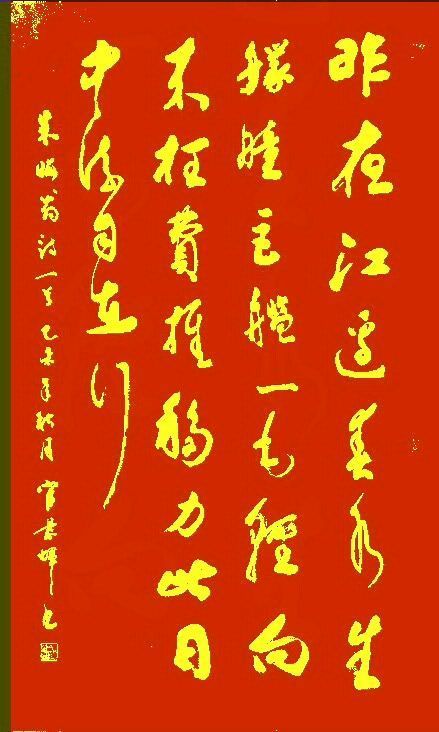 昨夜江邊春水生
艨艟巨艦一毛輕向
來枉費推移力此日
中流自在行
朱晦翁詩一首乙未年秋月